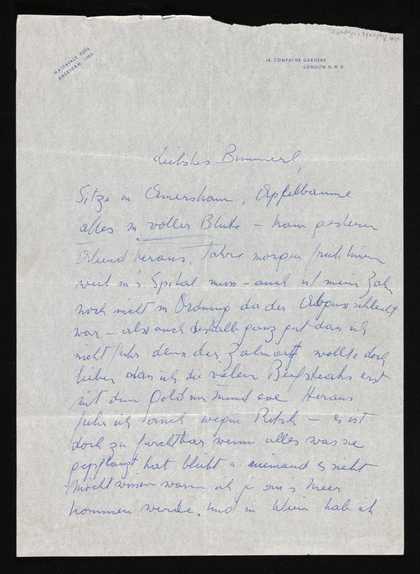 AMERSHAM
14 COMPAYNE GARDENS
LONDON N.W.6
Liebstes Bummerl,
Sitze in Amersham, Apfelbäume
alles in voller Blüte – kam gestern
Abend heraus, fahre morgen früh hinein
weil in's Spital muss – auch ist mein Zahn
noch nicht in Ordnung da der Abguss schlecht
war – also auch deshalb ganz gut dass ich
nicht fuhr denn der Zahnarzt wollte doch
lieber dass ich die vielen Beefsteaks erst
mit dem Gold im Mund esse Heraus
fuhr ich wegen – es ist
doch zu furchtbar wenn alles was sie
gepflanzt hat blüht u niemand es sieht
möcht wissen wann ich je an's Meer
kommen werde, und in Wien hab ich